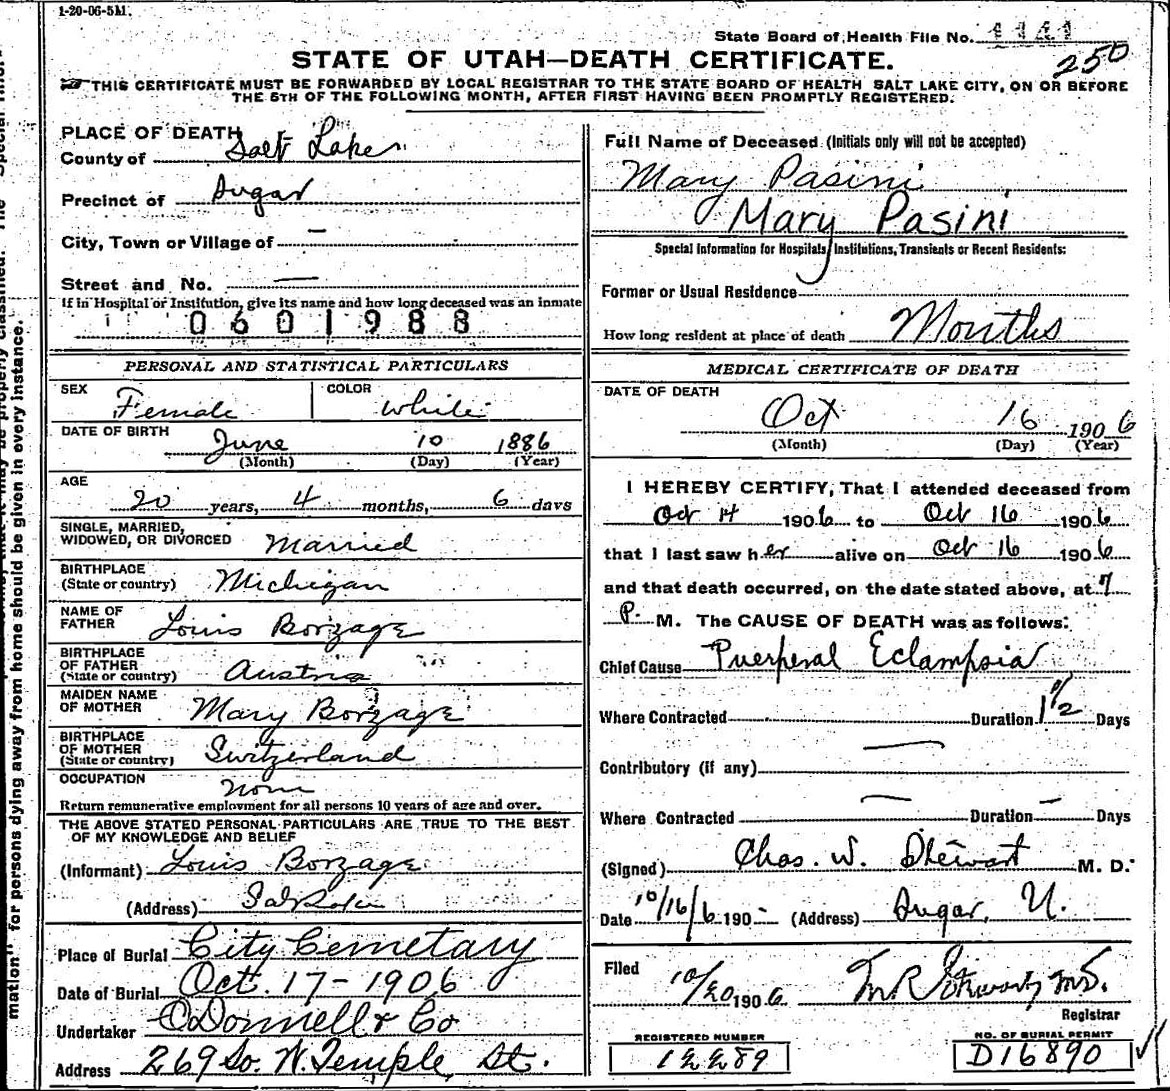 1-20-06-5M.
State Board of Health File No. 1141
250
STATE OF UTAH—DEATH CERTIFICATE.
THIS CERTIFICATE MUST BE FORWARDED BY LOCAL REGISTRAR TO THE STATE BOARD OF HEALTH SALT LAKE CITY, ON OR BEFORE
THE 5TH OF THE FOLLOWING MONTH, AFTER FIRST HAVING BEEN PROMPTLY REGISTERED.
PLACE OF DEATH
County of Salt Lake
Precinct of Sugar
City, Town or Village of —
Street and No. —
If in Hospital or Institution, give its name and how long deceased was an inmate
0601988
PERSONAL AND STATISTICAL PARTICULARS
SEX Female COLOR White
DATE OF BIRTH June 10 1886
(Month) (Day) (Year)
AGE
20 years, 4 months, 6 days
SINGLE, MARRIED,
WIDOWED, OR DIVORCED Married
BIRTHPLACE
(State or country) Michigan
NAME OF
FATHER Louis Borzage
BIRTHPLACE
OF FATHER
(State or country) Austria
MAIDEN NAME
OF MOTHER Mary Borzage
BIRTHPLACE
OF MOTHER
(State or country) Switzerland
OCCUPATION None
Return remunerative employment for all persons 10 years of age and over.
THE ABOVE STATED PERSONAL PARTICULARS ARE TRUE TO THE BEST
OF MY KNOWLEDGE AND BELIEF
(Informant) Louis Borzage
(Address)
Place of Burial City Cemetary
Date of Burial Oct. 17-1906
Undertaker O'Donnell & Co
Address 269 So. W. Temple St.
Full Name of Deceased (Initials only will not be accepted)
Mary Pasini
Mary Pasini
Special Information for Hospitals, Institutions, Transients or Recent Residents:
Former or Usual Residence
How long resident at place of death Months
MEDICAL CERTIFICATE OF DEATH
DATE OF DEATH
Oct 16 1906
(Month) (Day) (Year)
I HEREBY CERTIFY, That I attended deceased from
Oct 14 1906 to Oct 16 1906
that I last saw her alive on Oct 16 1906
and that death occurred, on the date stated above, at 7
P. M. The CAUSE OF DEATH was as follows:
Chief Cause Puerperal Eclampsia
Where Contracted Duration 1 1/2 Days
Contributory (if any) —
Where Contracted — Duration — Days
(Signed) Chas. W. Stewart M. D.
Date 10/16/6 190- (Address) Sugar, U.
Filed 10/20 1906 M.D.
Registrar
REGISTERED NUMBER
12289
NO. OF BURIAL PERMIT
D16890
mation" for persons dying away from home should be given in every instance.